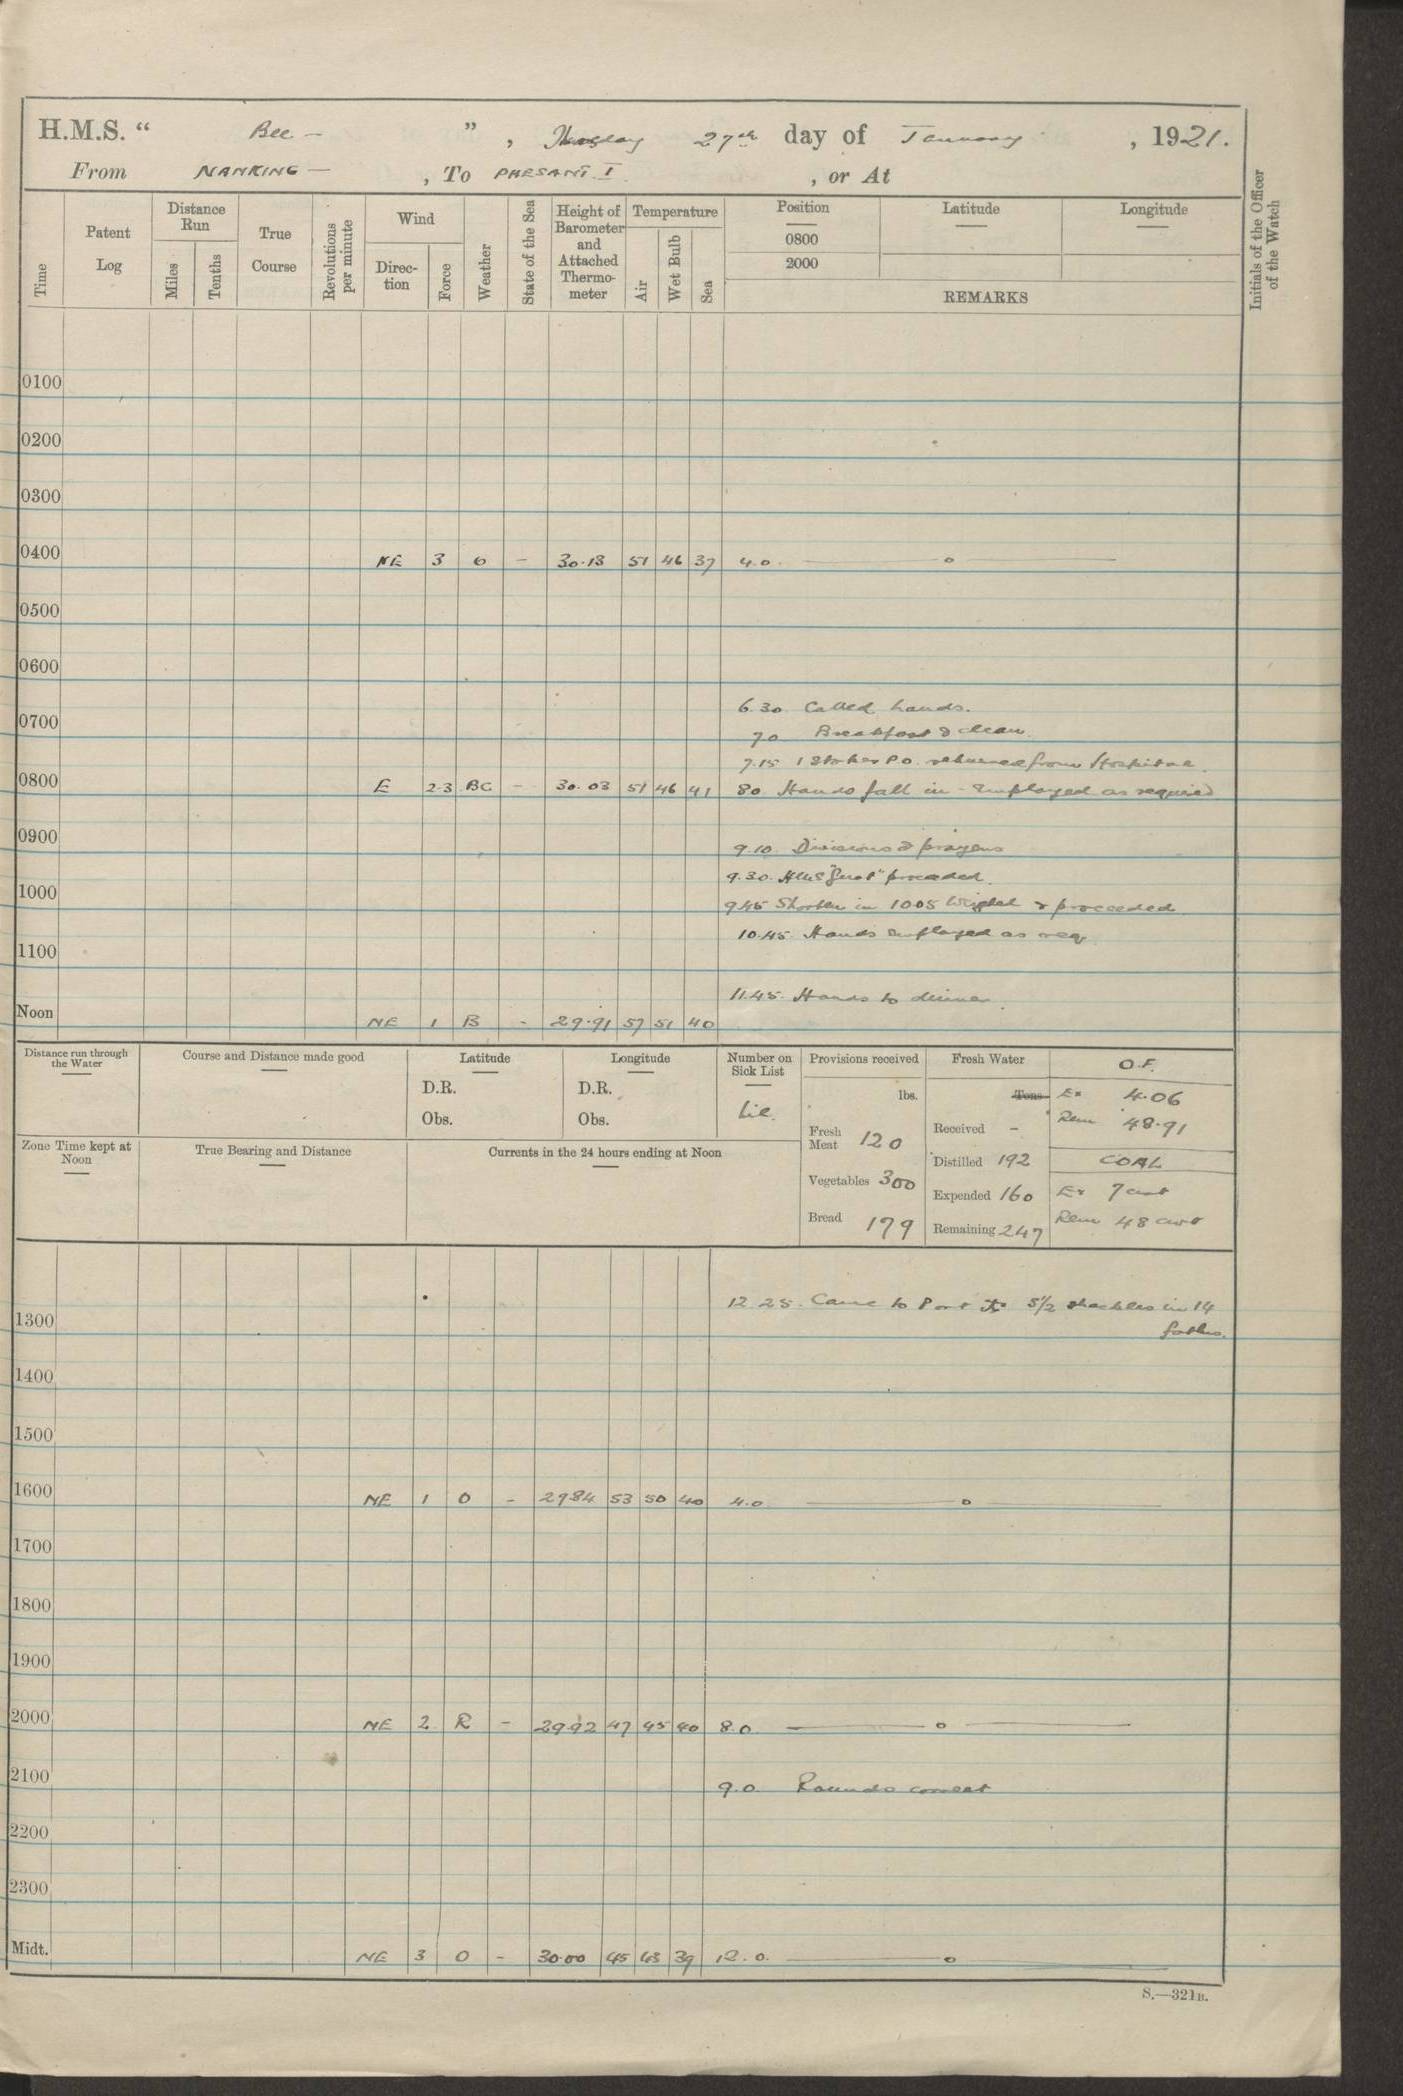 H.M.S. “ Bee — ” , Thursday 27th day of January , 1921.
From NANKING — , To PHESANT I , or At
Time
Patent Log
Distance Run
Miles
Tenths
True Course
Revolutions per minute
Wind
Direc-tion
Force
Weather
State of the Sea
Height of Barometer and Attached Thermo-meter
Temperature
Air
Wet Bulb
Sea
Position
0800
2000
Latitude
Longitude
REMARKS
Initials of the Officer of the Watch
0100
0200
0300
0400 NE 3 O - 30.13 51 46 37 4.0 — o —
0500
0600
6.30 Called hands.
0700
7.0 Breakfast & clean
7.15 1 Stoker P.O. returned from Hospital.
0800 E 2.3 BC - 30.03 51 46 41 8.0 Hands fall in - Employed as required
0900
9.10. Divisions & prayers
9.30. HMS "Gnat" proceeded.
1000
9.45 Shorten in 10.05 Weighed & proceeded
10.45. Hands employed as req
1100
11.45. Hands to dinner.
Noon NE 1 B - 29.91 57 51 40
Distance run through the Water
Course and Distance made good
Latitude
D.R.
Obs.
Longitude
D.R.
Obs.
Number on Sick List
Provisions received
lbs.
Fresh Meat 120
Vegetables 300
Bread 179
Fresh Water
Tons
Received -
Distilled 192
Expended 160
Remaining 247
O.F.
Ex 4.06
Rem 48.91
COAL
Ex 7 cwt
Rem 48 cwt
Zone Time kept at Noon
True Bearing and Distance
Currents in the 24 hours ending at Noon
12.25. Came to Port ⚓ 5½ shackles in 14
1300 faths.
1400
1500
1600 NE 1 O - 29.84 53 50 40 4.0 — o —
1700
1800
1900
2000 NE 2 R - 29.92 47 45 40 8.0 — o —
2100
9.0 Rounds correct
2200
2300
Midt. NE 3 O - 30.00 45 43 39 12.0. — o —
S.—321B.